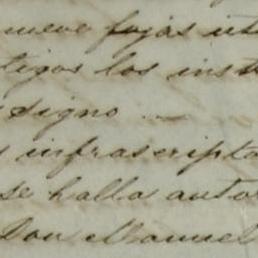 nueve fojas uti
tigos los inst
signo
infrascripto
se halla autor
Don Manuel